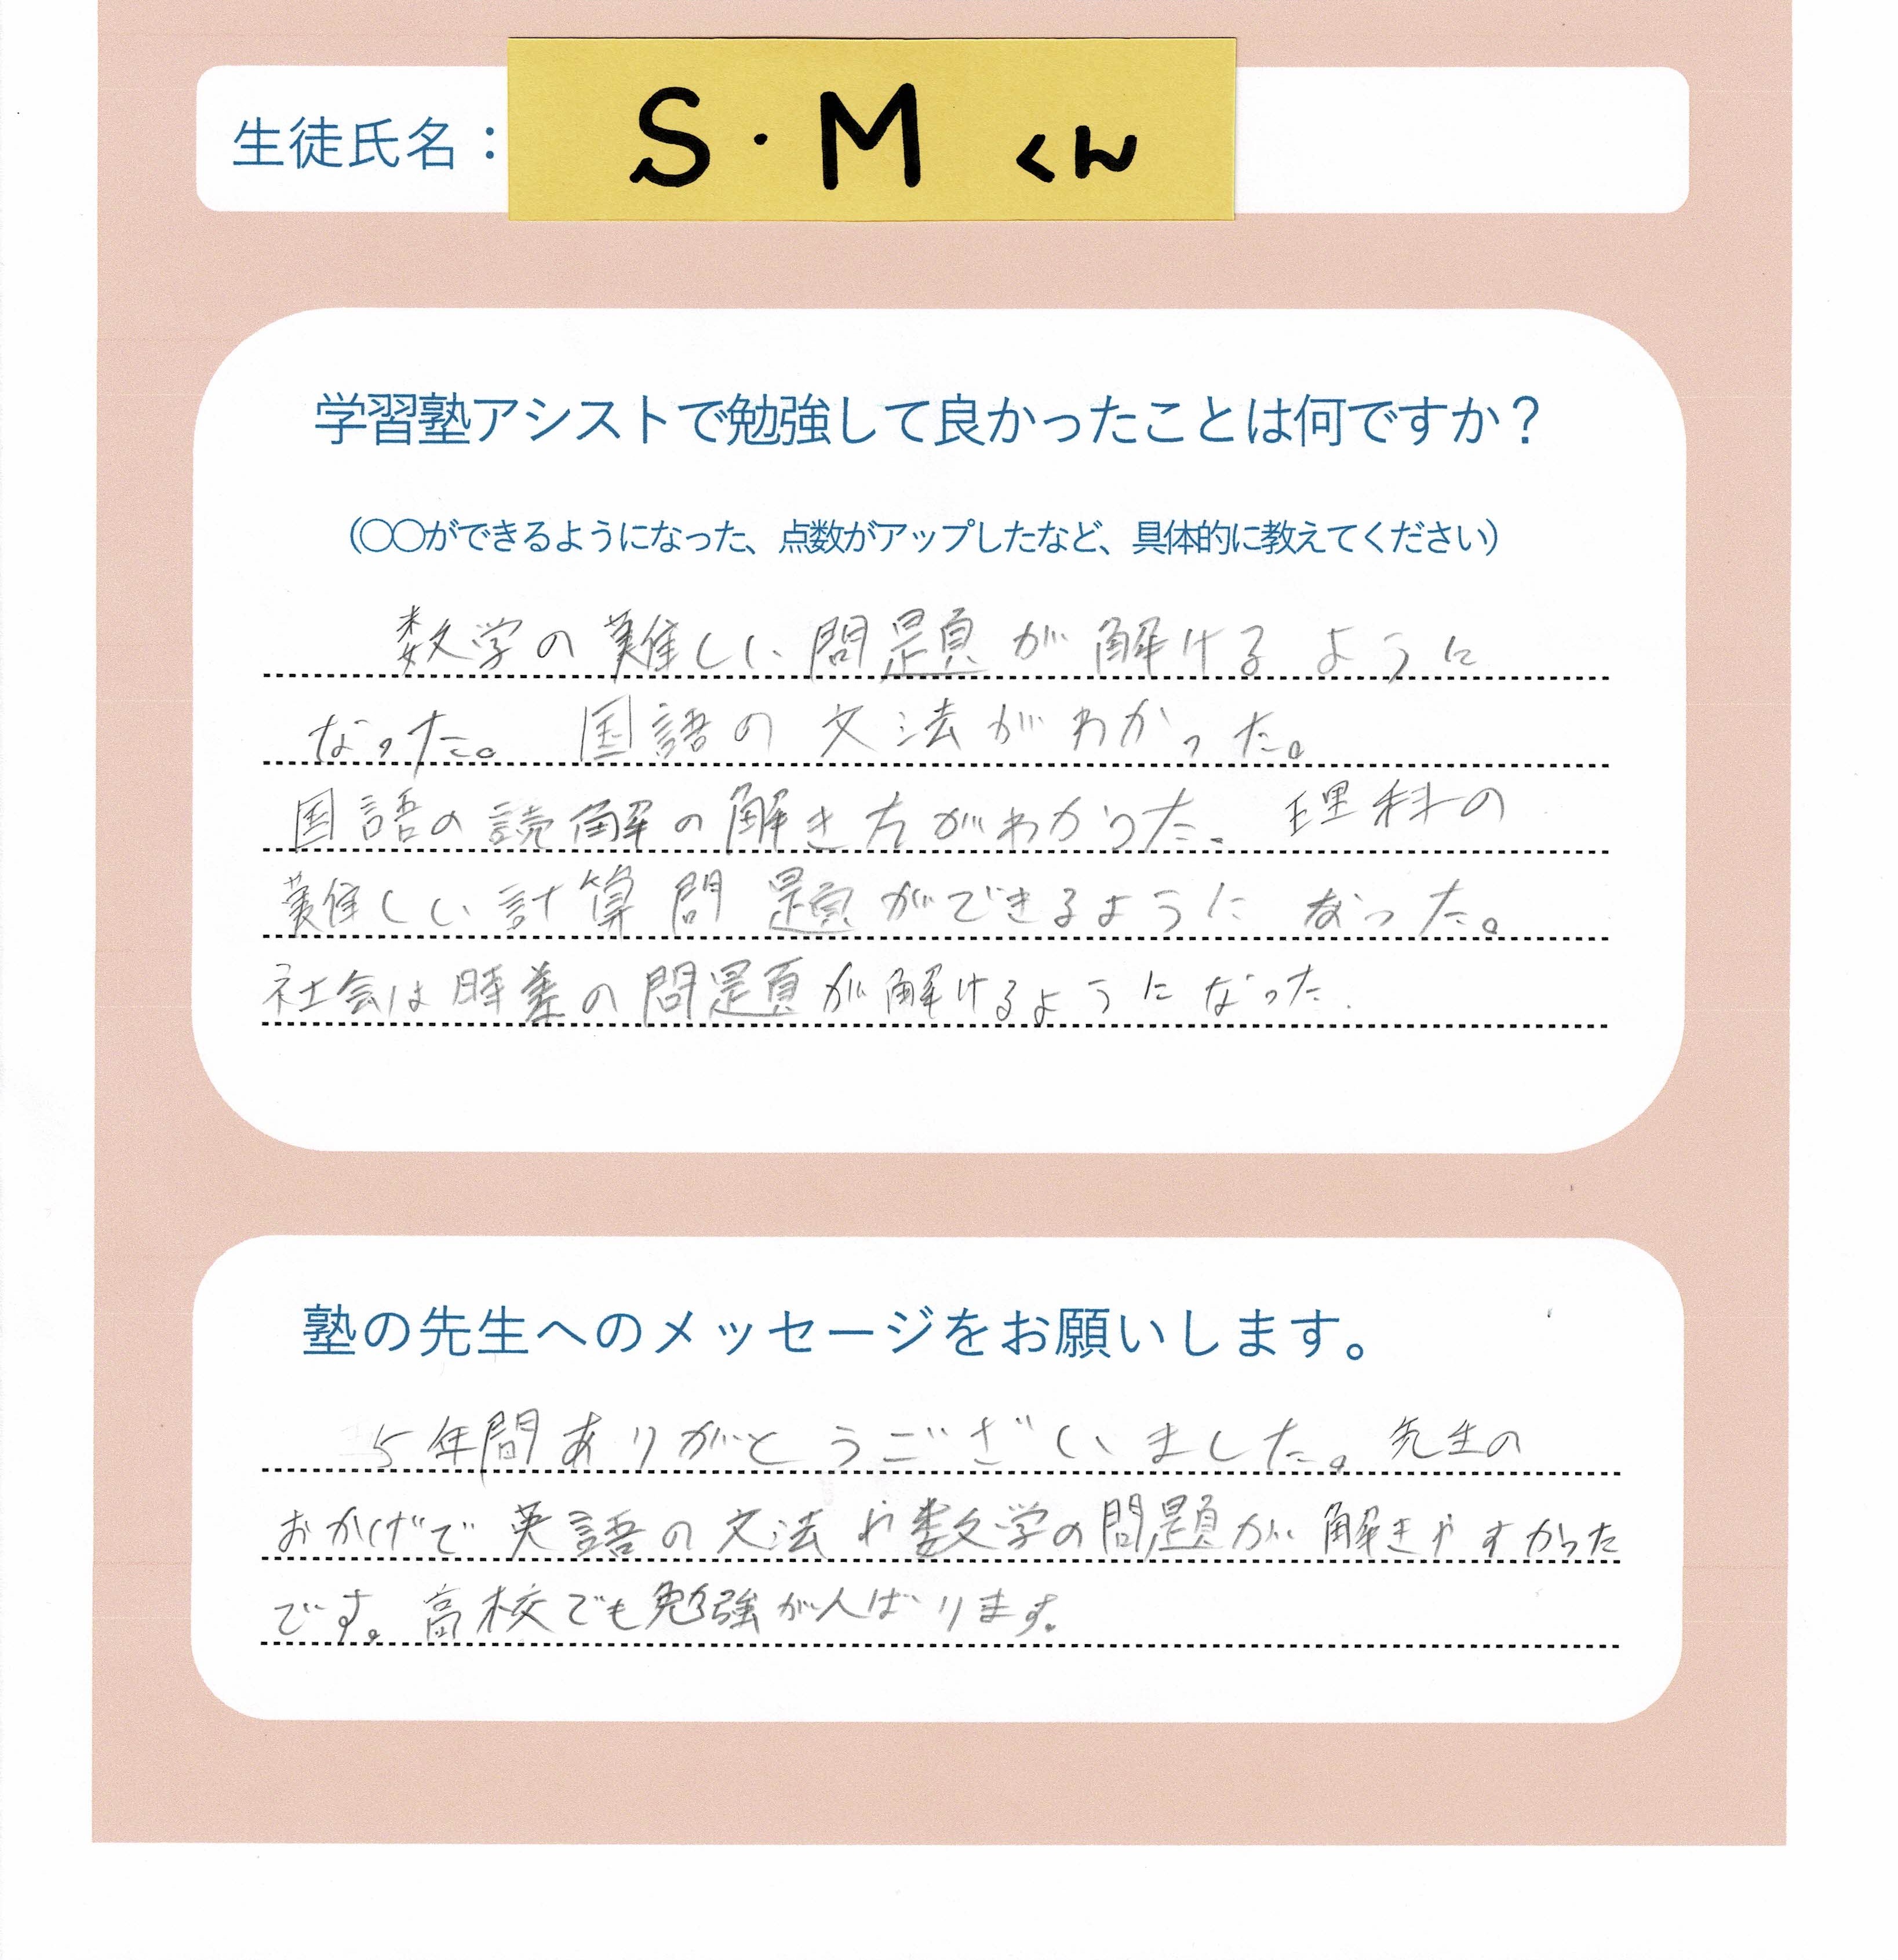 生徒氏名：S・Mくん
学習塾アシストで勉強して良かったことは何ですか？
（〇〇ができるようになった、点数がアップしたなど、具体的に教えてください）
数学の難しい問題が解けるように
なった。国語の文法がわかった。
国語の読解の解き方がわかった。理科の
難しい計算問題ができるようになった。
社会は時差の問題が解けるようになった.
塾の先生へのメッセージをお願いします。
5年間ありがとうございました。先生の
おかげで英語の文法や数学の問題が解きやすかった
です。高校でも勉強がんばります。